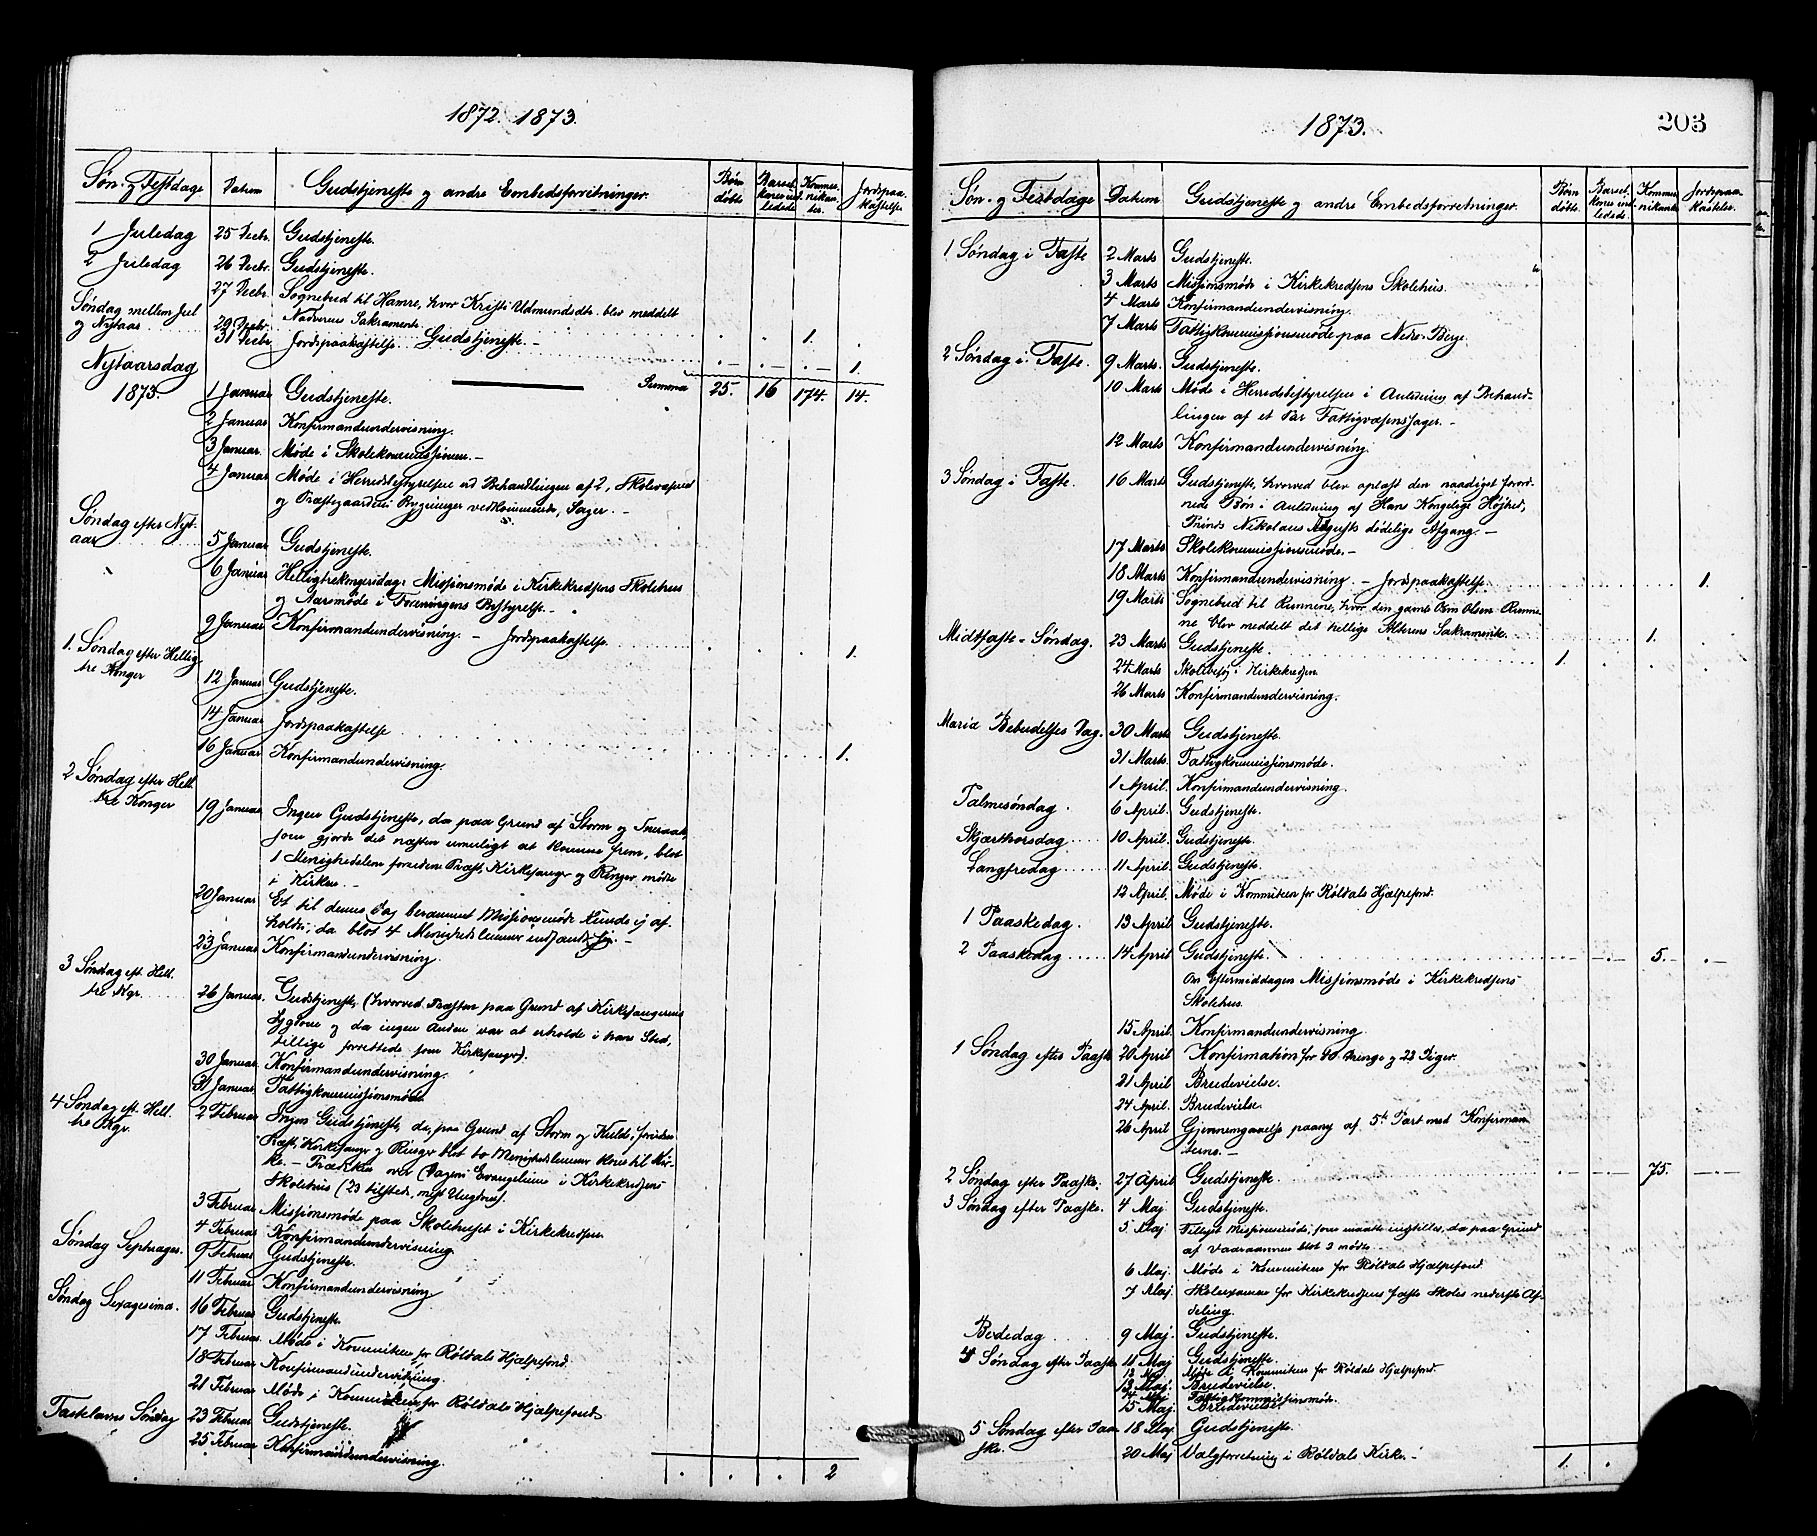 1872. 1873.
Søn- og Festdage Datum Gudstjeneste og andre Embedsforretninger. Børn døbte Barselkoner indledede Kommunikanter. Jordspaakastelse
1 Juledag 25 Decbr. Gudstjeneste.
2 Juledag 26 Decbr. Gudstjeneste.
27 Decbr. Sognebud til Hamre, hvor Kristi Udmundsdtr. blev meddelt
Nadverens Sakramente 1.
Søndag mellem Jul
og Nytaar 29 Decbr. Gudstjeneste. -
31 Decbr. Jordspaakastelse 1.
Summa 25. 16 174. 14.
Nytaarsdag
1873. 1 Januar Gudstjeneste.
2 Januar Konfirmandundervisning.
3 Januar. Møde i Skolekommissionen. -
4 Januar Møde i Herredsbestyrelsen ved Behandlingen af 2, Skolevæsenet
og Præstegaardens Bygninger vedkommende, Sager. -
Søndag efter Nyt-
aar 5 Januar Gudstjeneste.
6 Januar Helligtrekongersdag: Missionsmøde i Kirkekredsens Skolehus
og Aarsmøde i Foreningens Bestyrelse. -
9 Januar Konfirmandundervisning. - Jordspaakastelse 1.
1. Søndag efter Hellig
tre Konger 12 Januar Gudstjeneste.
14 Januar Jordspaakastelse 1.
16 Januar Konfirmandundervisning.
2 Søndag efter Hell.
tre Konger 19 Januar Ingen Gudstjeneste, da paa Grund af Storm og
som gjorde det næsten umuligt at komme frem, blot
1 Menighedslem foruden Præst, Kirkesanger og Ringer mødte
i Kirken. -
20 Januar Et til denne Dag berammet Missionsmøde kunde ej af-
holdes, da blot 4 Menighedslemmer indfandt sig. -
23 Januar Konfirmandundervisning.
3 Søndag eft. Hell.
tre Kgr. 26 Januar. Gudstjeneste, (hvorved Præsten paa Grund af Kirkesangerens
Sygdom og da ingen Anden var at erholde i hans Sted,
tillige forrettede som Kirkesanger).
30 Januar Konfirmandundervisning.
31 Januar Fattigkommissionsmøde
4 Søndag eft. Hell.
tre Kgr. 2 Februar Ingen Gudstjeneste, da, paa Grund af Storm og Kuld, foruden
Præst, Kirkesanger og Ringer blot to Menighedslemmer kom til Kir-
ke. - Trækker over Dagens Evangelium i Kirkekredsens
Skolehus (23 tilstede, mest Ungdom).
3 Februar Missionsmøde paa Skolehuset i Kirkekredsen.
4 Februar Konfirmandundervisning
Søndag Septuages. 9 Februar Gudstjeneste.
11 Februar Konfirmandundervisning
Søndag Sexagesima. 16 Februar Gudstjeneste.
17 Februar. Møde i Kommiteen for Røldals Hjælpefond.
18 Februar Konfirmandundervisning.
21 Februar Møde i Kommiteen for Røldals Hjælpefond.
Fastelavns Søndag 23 Februar Gudstjeneste.
25 Februar Konfirmandundervisning.
2
1873. 203
Søn- og Festdage Datum Gudstjeneste og andre Embedsforretninger. Børn døbte. Barselkoner indledede Kommunikanter Jordspaakastelse.
1 Søndag i Faste 2 Marts Gudstjeneste.
3 Marts Missionsmøde i Kirkekredsens Skolehus.
4 Marts Konfirmandundervisning.
7 Marts Fattigkommissionsmøde paa Nedre Berge.
2 Søndag i Faste. 9 Marts. Gudstjeneste.
10 Marts Møde i Herredsbestyrelsen i Anledning af Behand-
lingen af et Par Fattigvæsenssager. -
12 Marts Konfirmandundervisning.
3 Søndag i Faste. 16 Marts Gudstjeneste, hvorved blev oplæst den naadigst forord-
nede Bøn i Anledning af Hans Kongelige Højhed,
Prinds Nikolaus Augusts dødelige Afgang. -
17 Marts Skolekommissionsmøde. -
18 Marts Konfirmandundervisning. - Jordspaakastelse 1.
19 Marts Sognebud til Runnene, hvor den gamle Olsen Runne-
ne blev meddelt det hellige Alterens Sakramente. 1.
Midtfaste-Søndag. 23 Marts Gudstjeneste 1.
24 Marts Skolebesøg i Kirkekredsen.
26 Marts Konfirmandundervisning.
Mariæ Bebudelses Dag. 30 Marts Gudstjeneste.
31 Marts. Fattigkommissionsmøde.
1 April. Konfirmandundervisning.
Palmesøndag. 6 April. Gudstjeneste.
Skjærthorsdag 10 April. Gudstjeneste.
Langfredag 11 April. Gudstjeneste.
12 April. Møde i Kommiteen for Røldals Hjælpefond.
1 Paaskedag. 13 April Gudstjeneste.
2 Paaskedag 14 April Gudstjeneste. 5.
Om Eftermiddagen Missionsmøde i Kirkekredsens
Skolehus.
15 April. Konfirmandundervisning.
1 Søndag efter Paaske 20 April Konfirmation for 10 Drenge og 23 Piger.
21 April Brudevielse.
24 April. Brudevielse.
26 April Gjennemgaaelse paany af 5te Part med Konfirman-
derne. -
2 Søndag efter Paaske. 27 April Gudstjeneste. 75.
3 Søndag efter Paaske. 4 Maj Gudstjeneste.
5 Maj Tillyst Missionsmøde, som maatte indstilles, da paa Grund
af Vaaraannen blot 3 mødte.
6 Maj. Møde i Kommiteen for Røldals Hjælpefond.
7 Maj. Skoleexamen for Kirkekredsens faste Skoles nederste Af-
deling.
Bededag 9 Maj. Gudstjeneste.
4 Søndag efter Paaske 11 Maj Gudstjeneste.
12 Maj Møde i Kommiteen for Røldals Hjælpefond.
13 Maj. Brudevielse.
14 Maj Fattigkommissionsmøde.
15 Maj. Brudevielse.
5 Søndag efter Paa-
ske. 18 Maj. Gudstjeneste.
20 Maj Valgforretning i Røldals Kirke. -
1.